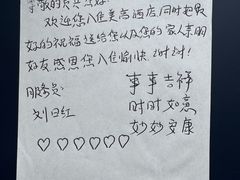 尊敬的贵宾您好:
欢迎您入住美居酒店,同时把最
好的祝福送给您以及您的家人亲朋
好友,感恩您入住愉快,谢谢!
服务员:
刘日红
事事吉祥
时时如意
妙妙安康
♡♡♡♡♡♡